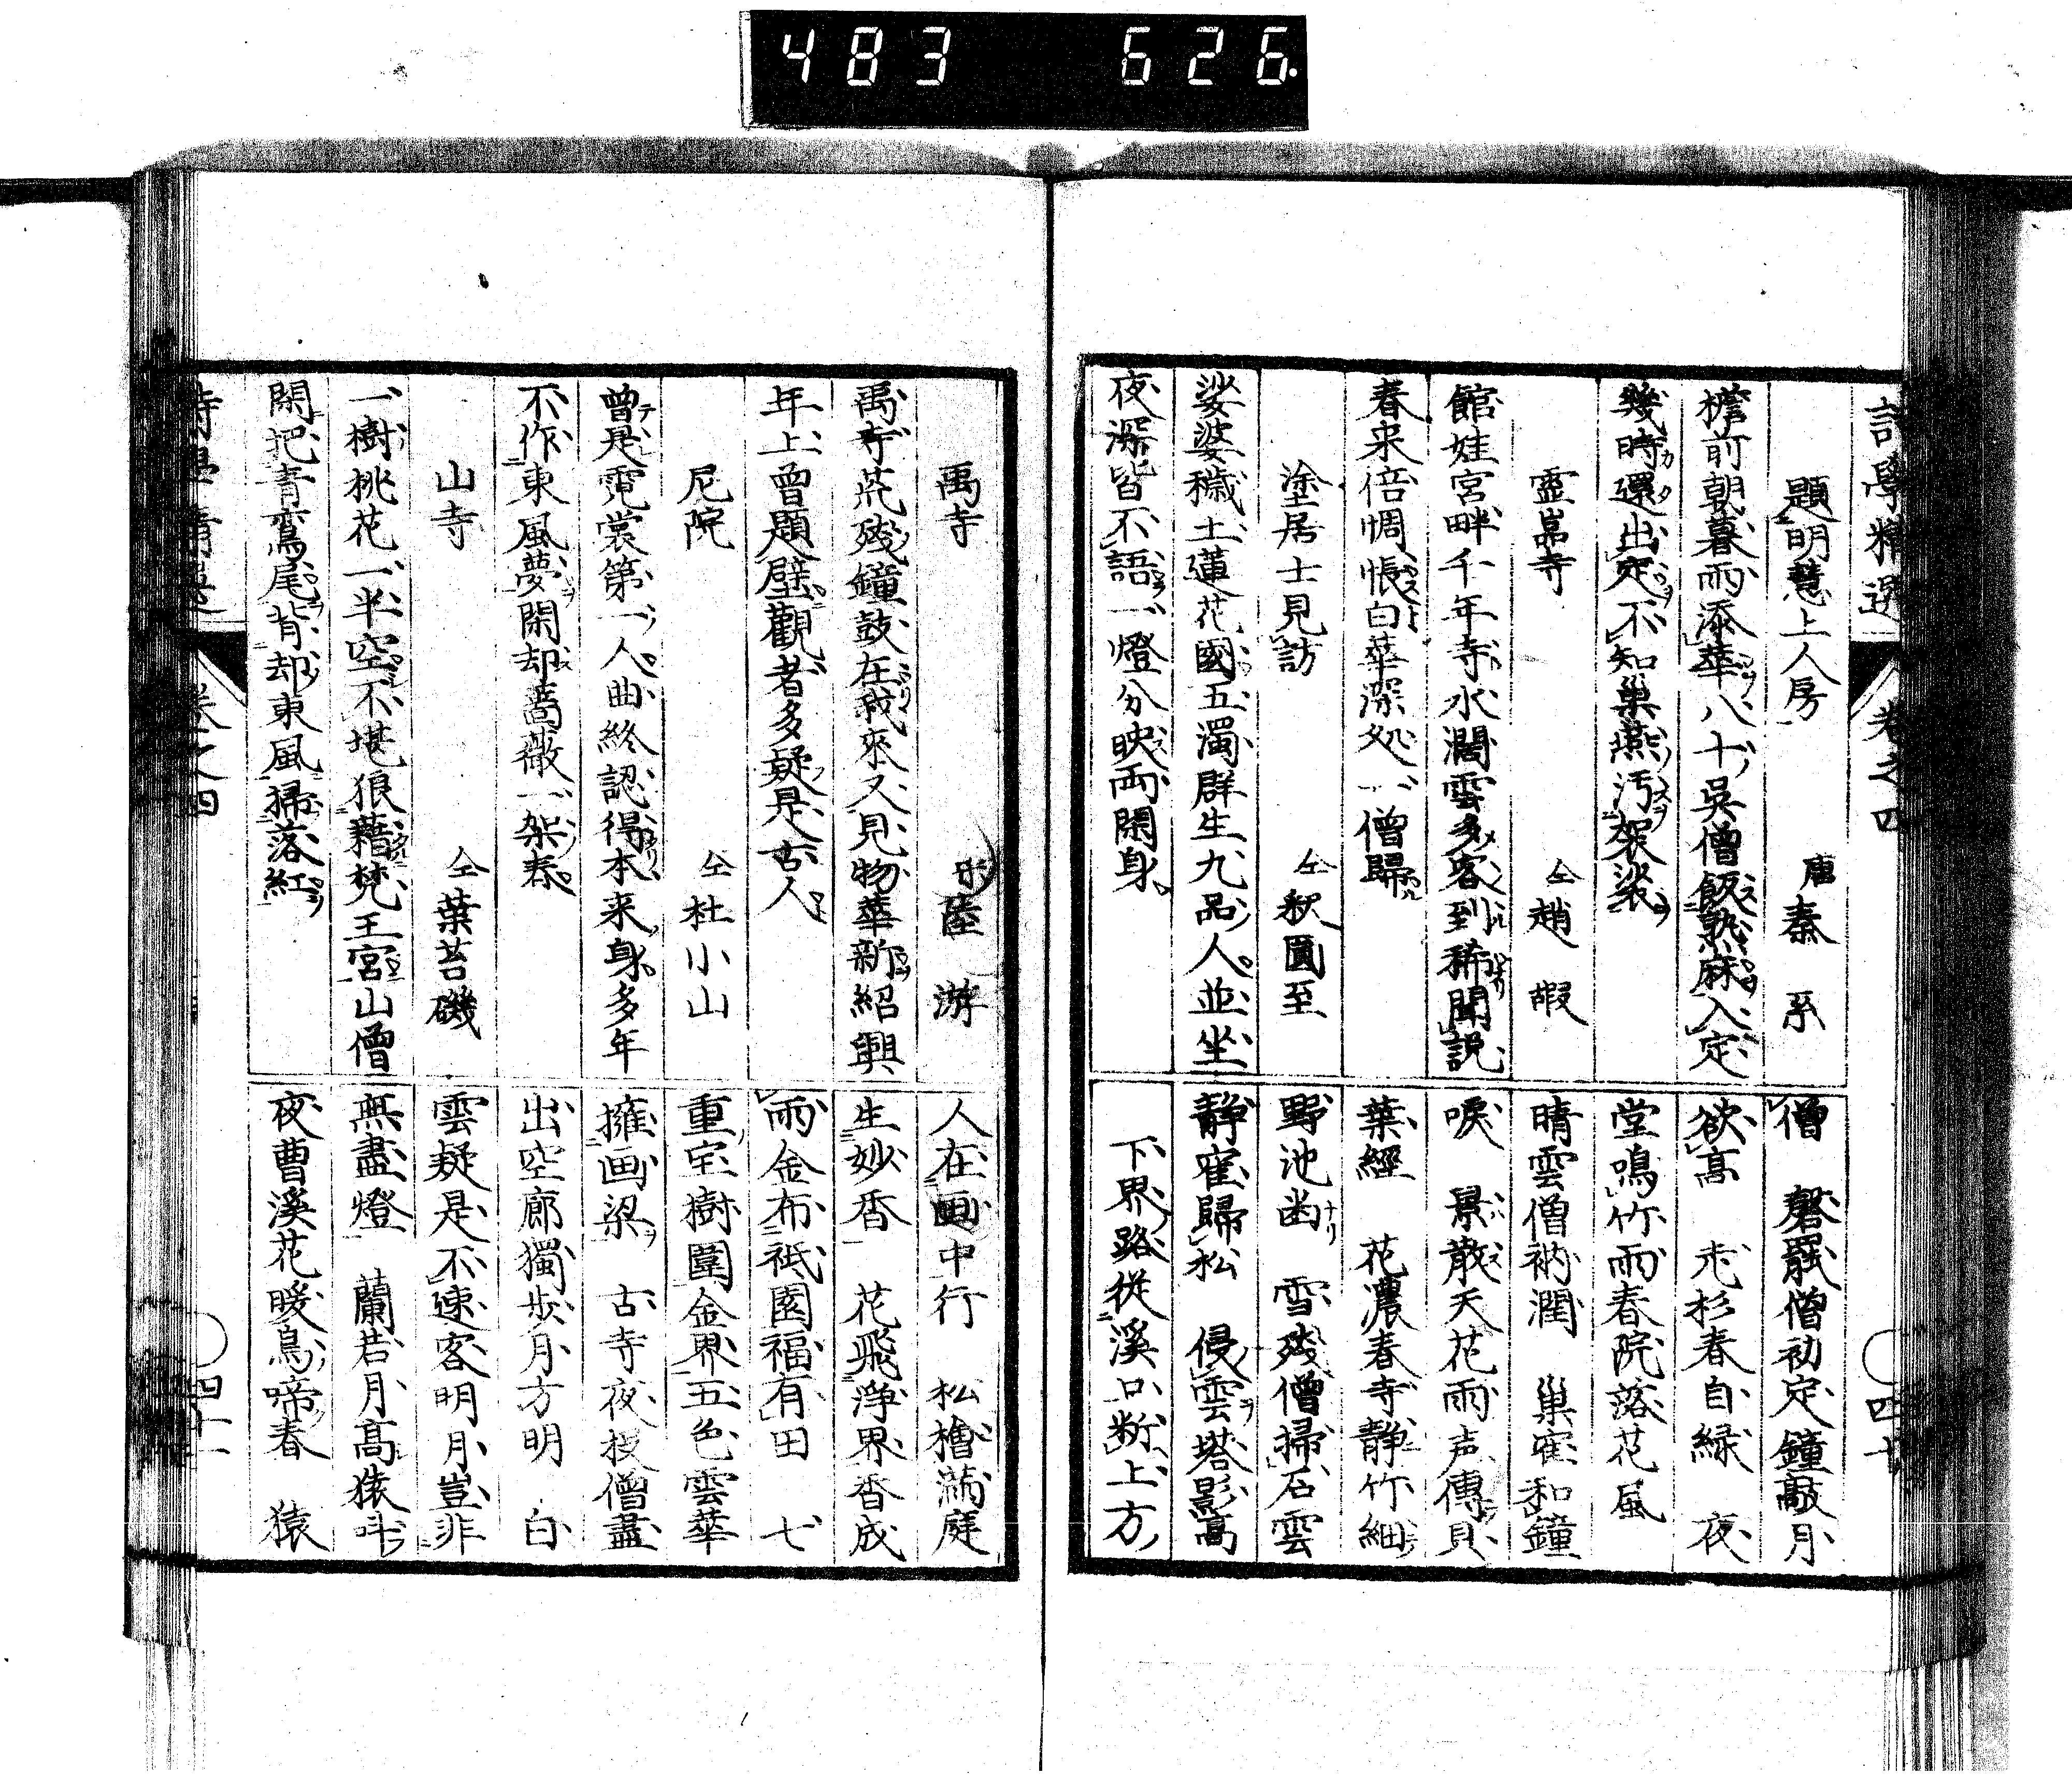 483 626.
詩學精選 卷之四 四十
題明慧上人房 唐 秦 系
檐前朝暮雨添華八十吳僧飯熟麻入定
幾時還出定不知巢燕汚袈裟
靈嵓寺 仝 趙 嘏
館娃宮畔千年寺水濶雲多客到稀聞説
春来倍惆悵白華深処一僧歸
塗居士見訪 仝 釈圓至
娑婆穢土蓮花國五濁群生九品人並坐
夜深皆不語一燈分映両閑身
僧 磬罷僧初定鐘敲月
欲高 老杉春自緑 夜
堂鳴竹雨春院落花風
晴雲僧衲潤 巣寉和鐘
唳 景散天花雨声傳貝
葉經 花濃春寺静竹細
野池幽 雪残僧掃石雲
静寉歸松 侵雲塔影高
下界路從溪口断上方
禹寺 陸 游
禹寺荒殘鐘鼓在我來又見物華新紹興
年上曾題壁觀者多疑是古人
尼院 仝 杜小山
曾是霓裳第一人曲終認得本来身多年
不作東風夢閑却薔薇一架春
山寺 仝 葉苔磯
一樹桃花一半空不堪狼藉梵王宮山僧
閑把青鸞尾背却東風掃落紅
人在画中行 松檜満庭
生妙香 花飛浄界香成
雨金布祇園福有田 七
重宝樹圍金界五色雲華
擁画梁 古寺夜投僧盡
出空廊獨歩月方明 白
雲疑是不速客明月豈非
無盡燈 蘭若月高猿呌
夜曹溪花暖鳥啼春 猿
卷之四 四十一